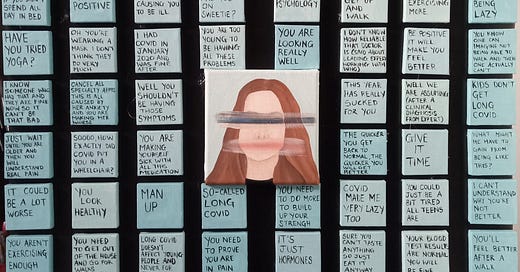 SPEND ALL
DAY IN BED
POSITIVE
CAUSING YOU
TO BE ILL
SWEETIE?
PSYCHOLOGY
AND
WALK
EXERCISING
MORE.
BEING
LAZY
HAVE
YOU TRIED
YOGA?
OH YOU'RE
WEARING A
MASK I DON'T
THINK THEY
DO VERY
MUCH
I HAD
COVID IN
JANUARY
2020 AND
WAS FINE
AFTER
YOU ARE TOO
YOUNG TO
BE HAVING
ALL THESE
PROBLEMS
YOU ARE
LOOKING
REALLY
WELL
I DON'T KNOW
HOW RELIABLE
THAT DOCTOR
IS
ABOUT
LEADING EXPERT
WORKING WITH
WHO)
BE POSITIVE
IT WILL
MAKE YOU
FEEL
BETTER
YOU KNOW
ONE CAN
IMAGINE NOT
BEING ABLE TO
WALK AND THEN
ONE ACTUALLY
CAN'T
I KNOW
SOMEONE WHO
HAS THAT AND
THEY ARE FINE
NOW SO IT
CAN'T BE
THAT BAD
CANCEL ALL
SPECIALIST APPTS
THIS IS ALL
CAUSED BY
HER ANXIETY
AND YOU ARE
MAKING HER
WELL YOU
SHOULDN'T
BE HAVING
THOSE
SYMPTOMS
THIS YEAR
HAS REALLY
SUCKED FOR
YOU
WELL WE
ARE ASSUMING
(AFTER A
CLINICAL
DIAGNOSIS
FROM EXPERT)
KIDS DON'T
GET
LONG
COVID
JUST WAIT
UNTIL YOU
ARE OLDER
AND THEN
YOU WILL
UNDERSTAND
REAL PAIN
SOOOO, HOW
EXACTLY DID
COVID PUT
YOU IN A
WHEELCHAIR?
YOU ARE
MAKING
YOURSELF
SICK WITH
ALL THIS
MEDICATION
THE QUICKER
YOU GET
BACK TO
NORMAL, THE
QUICKER YOU
WILL GET
BETTER
GIVE
IT
TIME
WHAT MIGHT
HAVE TO
GAIN FROM
BEING
LIKE THIS?
IT COULD
BE A LOT
WORSE
YOU
LOOK
HEALTHY
MAN
UP
SO-CALLED
LONG
COVID
YOU NEED
TO DO MORE
TO BUILD
UP YOUR
STRENGH
COVID
MADE ME
VERY LAZY
TOO
YOU COULD
JUST BE A
BIT TIRED
ALL TEENS
ARE
I CAN'T
UNDERSTAND
WHY YOU'RE
NOT
BETTER
YOU AREN'T
EXERCISING
ENOUGH
YOU NEED
TO GET OUT
OF THE HOUSE
AND GO FOR
WALKS
LONG COVID
DOESN'T
AFFECT
YOUNG PEOPLE
AND NEVER FOR
YOU NEED
TO PROVE
YOU ARE
IN PAIN
IT'S
JUST
HORMONES
SURE YOU
CAN'T TASTE
ANYTHING
SO JUST
EAT IT
ANYWAY
YOUR BLOOD
TEST RESULTS
ARE NORMAL
YOU WILL
BE FINE
YOU'LL
FEEL BETTER
AFTER A
WALK